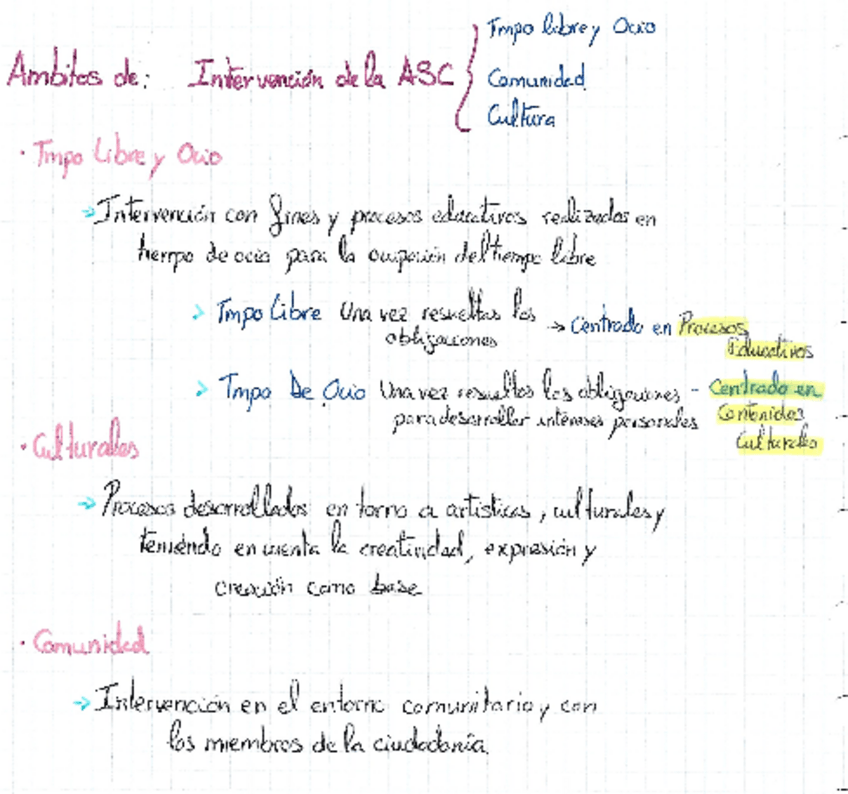 Tmpo libre y Ocio
Ambitos de: Intervención de la ASC
Comunidad
Cultura
· Tmpo Libre y Ocio
Intervención con fines y procesos educativos realizados en
tiempo de ocio para la ocupación del tiempo libre
Tmpo Libre Una vez resueltas las → Centrado en Procesos
obligaciones Educativos
Tmpo De Ocio Una vez resueltas las obligaciones - Centrado en
para desarrollar intereses personales Contenidos
Culturales
· Culturales
Procesos desarrollados en torno a artísticas, culturales y
teniendo en cuenta la creatividad, expresión y
creación como base
· Comunidad
Intervención en el entorno comunitario y con
los miembros de la ciudadanía.